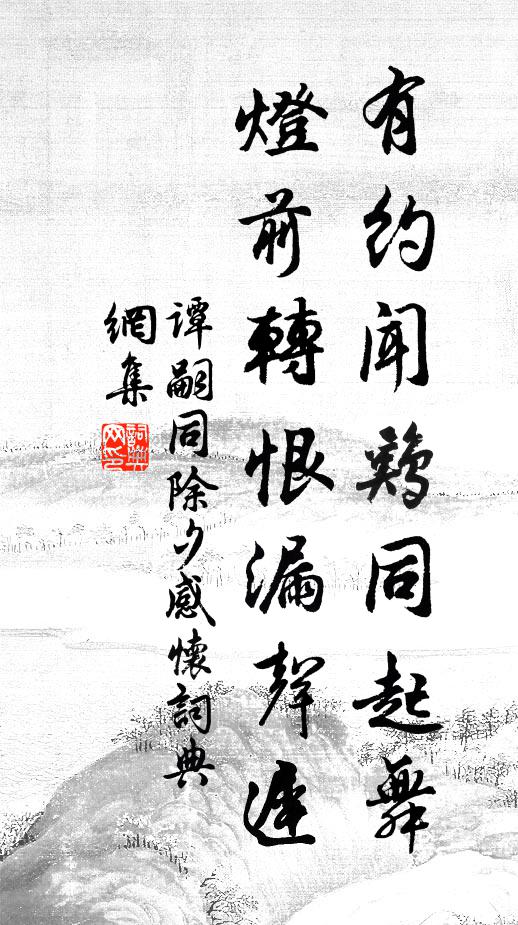 有約闻鷄同起舞
燈前轉恨漏聲遲
谭嗣同除夕感懷詞典
網集